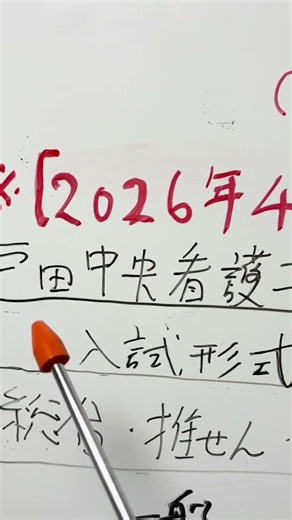 ※[2026年4
戸田中央看護
入試形式
総合・推せん・
一般